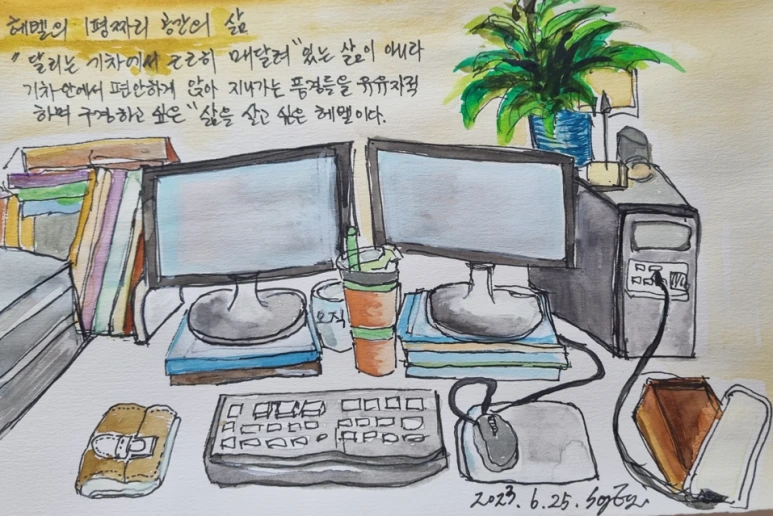 헤멜의 1평짜리 공간의 삶
"달리는 기차에서 흐르히 매달려" 있는 삶이 아니라
기차안에서 편안하게 앉아 지나가는 풍경들을 유유자적
하며 구경하고 싶은 "삶을 살고 싶은 헤멜이다.
오직
2023.6.25.